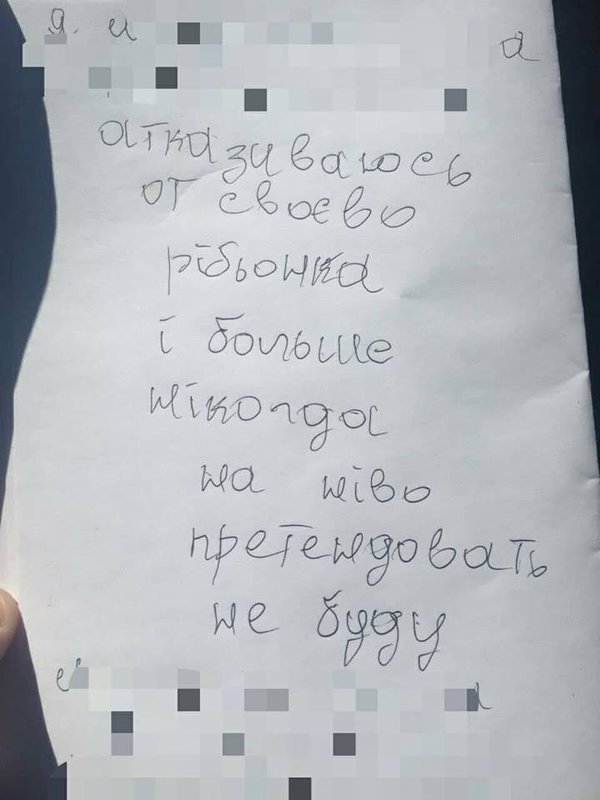 атказиваюсь
от своєво
рібьонка
і больше
нікогда
на ніво
претендовать
не буду